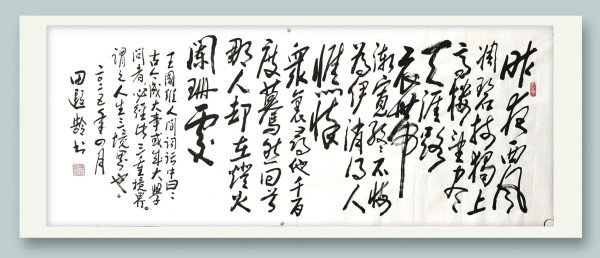 昨夜西风
凋碧树独上
高楼望尽
天涯路
衣带
渐宽终不悔
为伊消得人
憔悴
衆裏尋他千百
度蓦然回首
那人却在燈火
阑珊處
王國維人间词话中曰:
古今成大事或成大學
问者必经此三重境界。
谓之人生三境界也。
二〇二五年四月
田 龄书